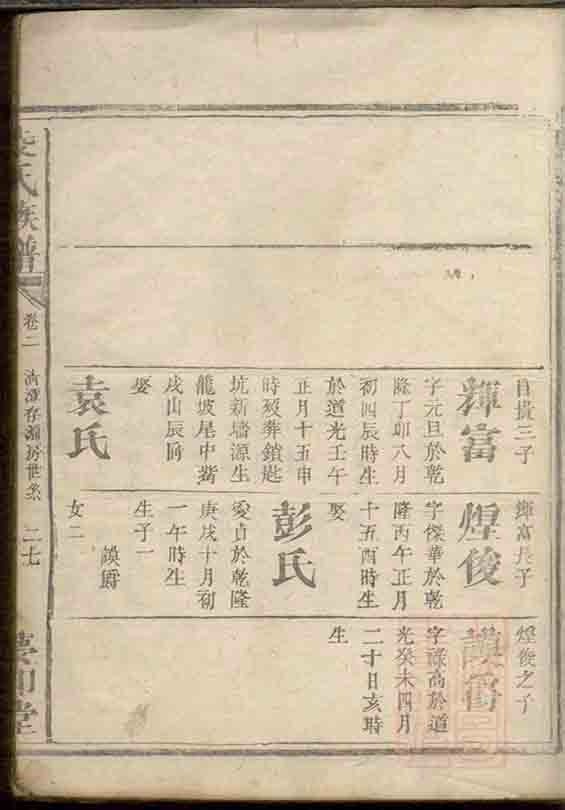 自貴三子
輝富
字元旦於乾
隆丁卯八月
初四辰時生
於道光壬午
正月十五申
時歿葬鎖匙
坑新墻源生
龍坡尾中嘴
戌山辰向
娶
袁氏
輝富長子
煌俊
字傑華於乾
隆丙午正月
十五酉時生
娶
彭氏
愛貞於乾隆
庚戌十月初
一午時生
生子一
謨爵
女二
煌俊之子
謨爵
字祿高於道
光癸未四月
二十日亥時
生
氏族譜
卷二
存源房世系
二七